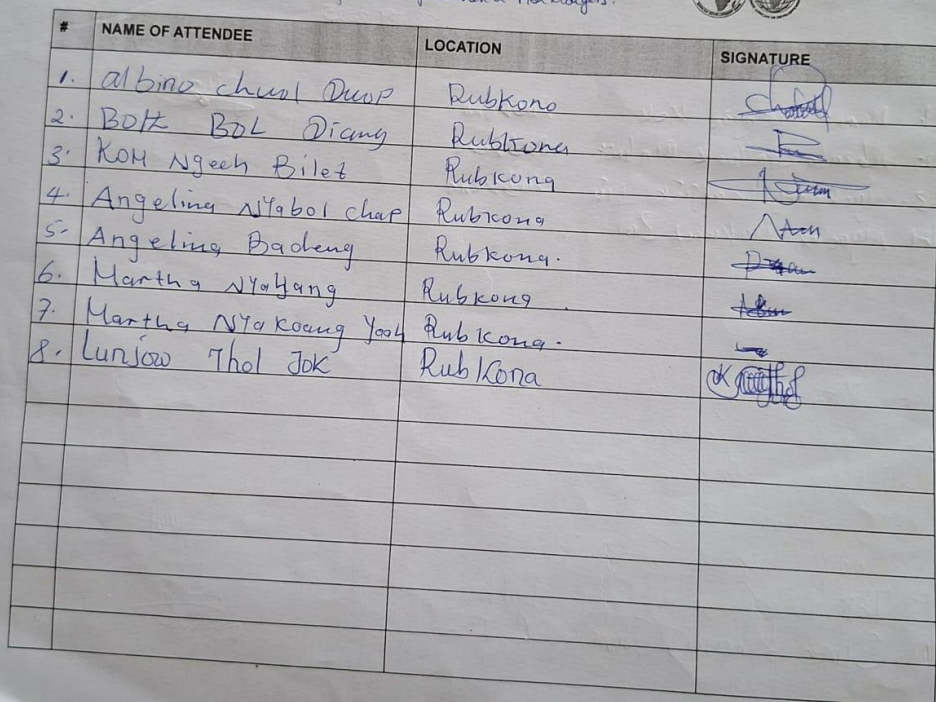 # NAME OF ATTENDEE LOCATION SIGNATURE
1. albino chuol Duop Rubkono
2. BOL Diang Rubkona
3. KOM Ngech Bilet Rubkona
4. Angelina NYabol chap Rubkona
5. Angelina Badeng Rubkona.
6. Martha NYaYang Rubkona
7. Martha NYakoang Rubkona.
8. Lunjow Thol JOK RubKona